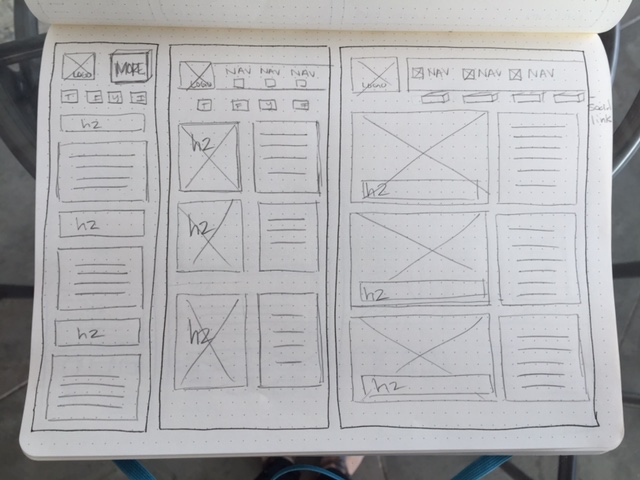 LOGO MORE
h2
h2
h2
LOGO NAV NAV NAV
h2
h2
h2
LOGO NAV NAV NAV
Social link
h2
h2
h2